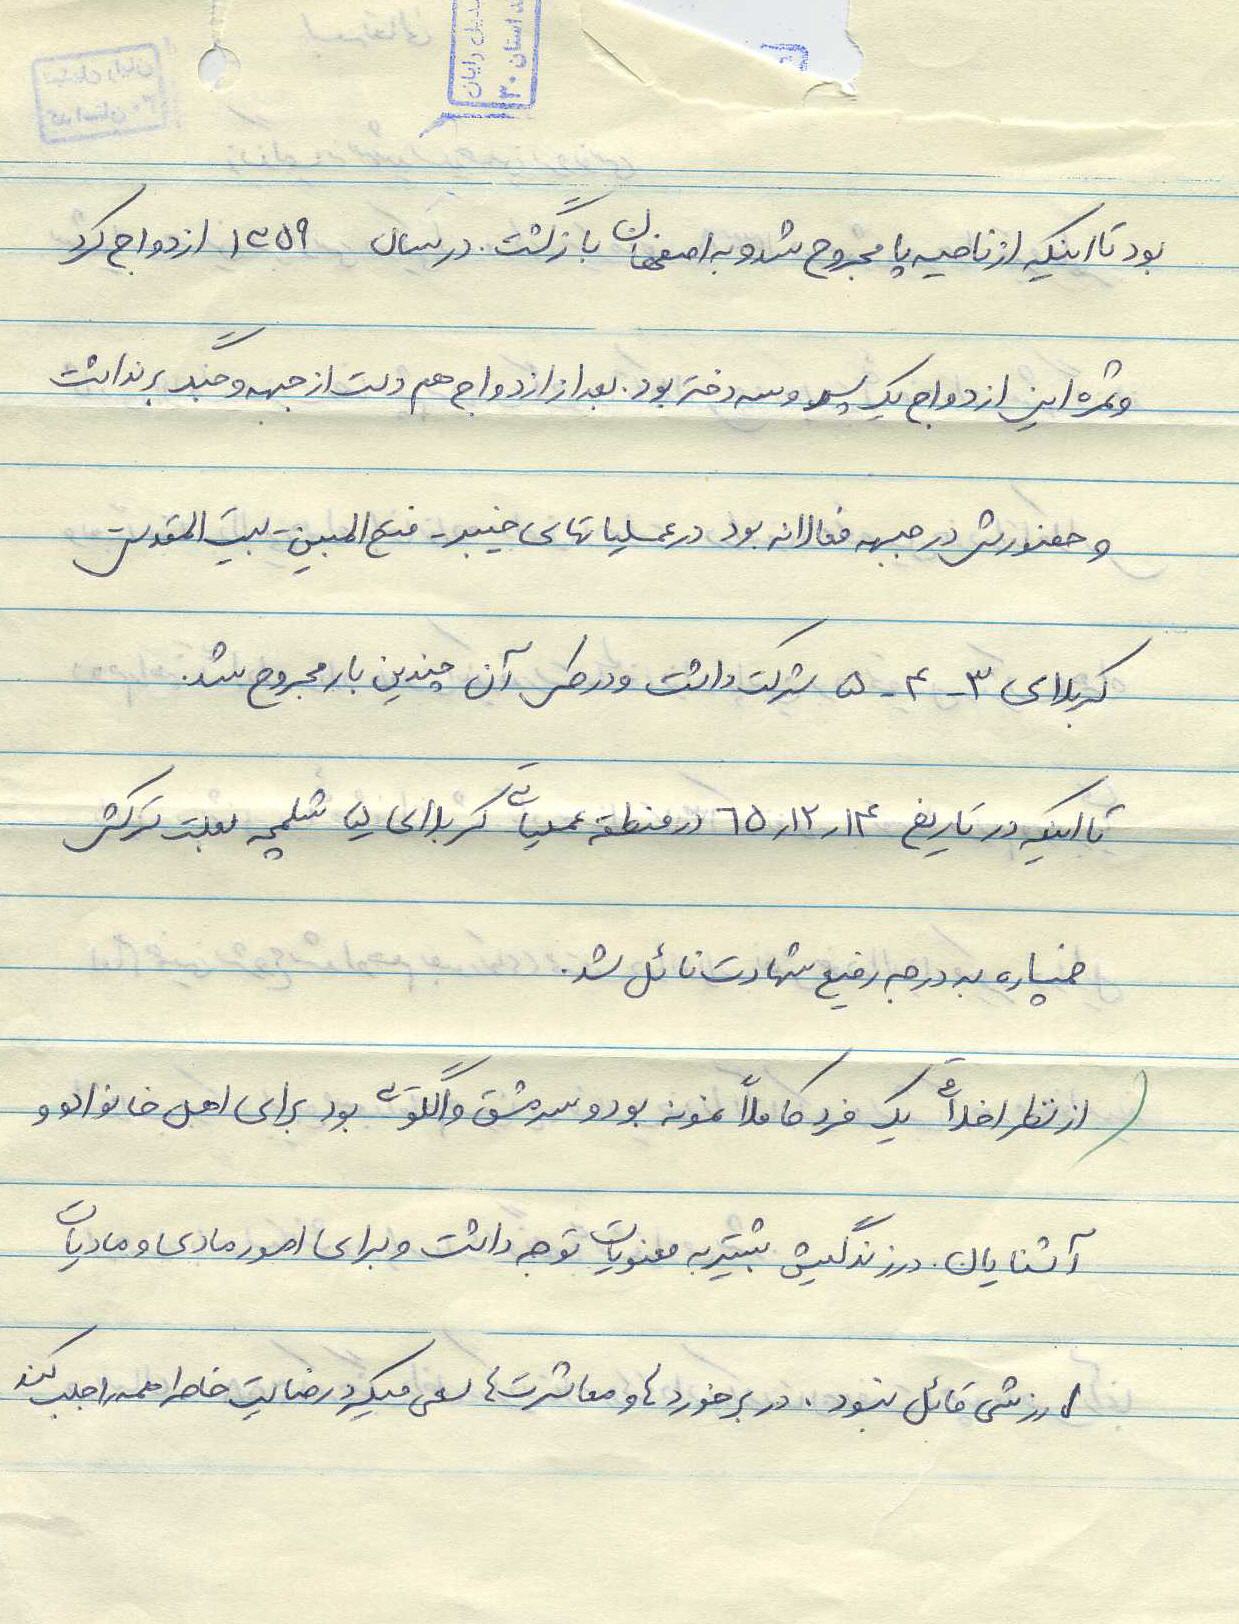 تبدیل رایان
کد استان ۳۰
بود تا اینکه از ناحیه پا مجروح شد و به اصفهان بازگشت. در سال ۱۳۵۹ ازدواج کرد
و ثمره این ازدواج یک پسر و سه دختر بود. بعد از ازدواج هم دست از جبهه و جنگ برنداشت
و حضورش در جبهه فعالانه بود در عملیاتهای خیبر - فتح المبین - بیت المقدس
کربلای ۳ - ۴ - ۵ شرکت داشت و در طی آن چندین بار مجروح شد.
تا اینکه در تاریخ ۶۵٫۱۲٫۱۴ در منطقه عملیاتی کربلای ۵ شلمچه بعلت ترکش
خمپاره به درجه رفیع شهادت نائل شد.
از نظر اخلاقی یک فرد کاملاً نمونه بود و سرمشق و الگوئی بود برای اهل خانواده و
آشنایان. در زندگیش بیشتر به معنویات توجه داشت و برای امور مادی و مادیات
ارزشی قائل نبود. در برخوردها و معاشرت‌ها سعی میکرد رضایت خاطر همه را جلب کند